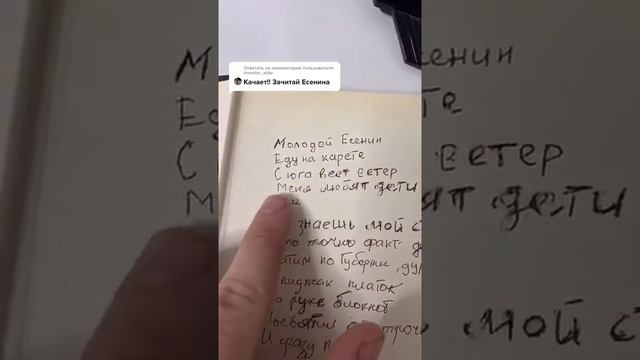 Ответить на комментарий пользователя
investor_aldo
Качает!! Зачитай Есенина
Молодой Есенин
Еду на карете
С юга веет ветер
Меня любят дети
знаешь мой с
то точно факт
по Губерни, ду
пиджак платок
а руке блокнот
И сразу п